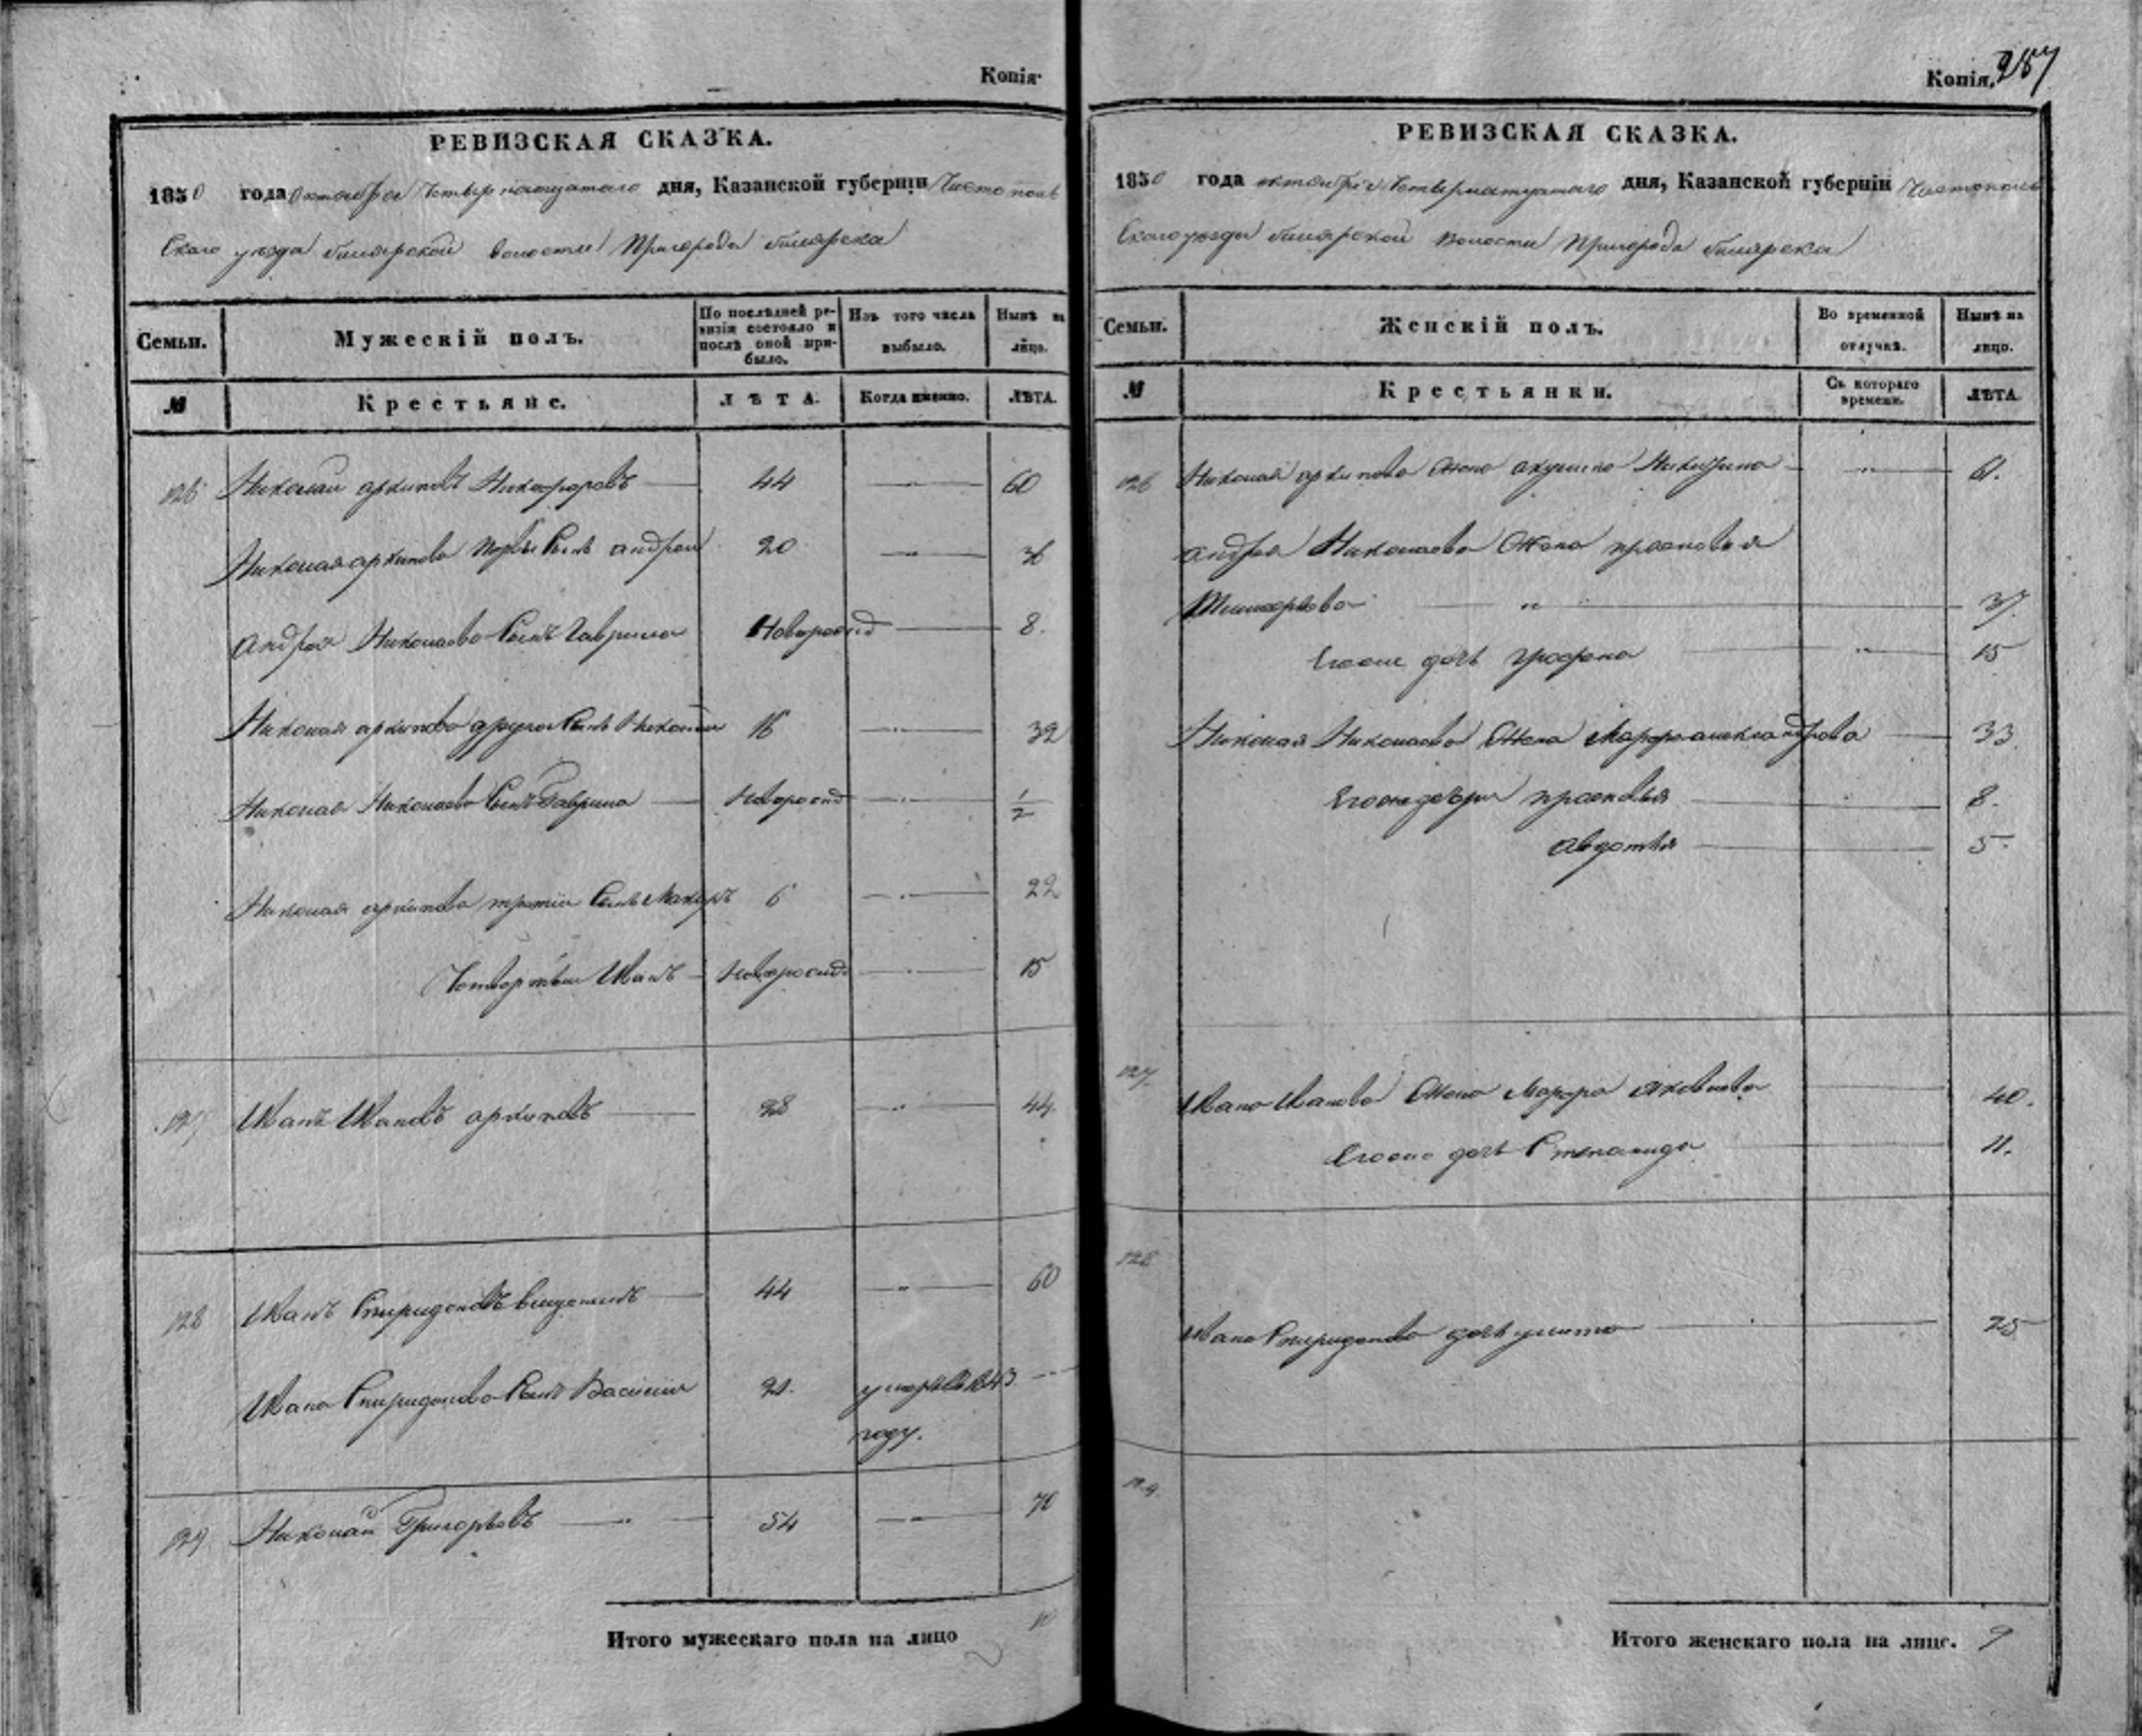 Копія
РЕВИЗСКАЯ СКАЗКА.
1850 года октября Четырнатцатаго дня, Казанской губерніи Чистополь
Скаго уезда билярской волости Пригорода билярска
Семьи.
Мужескій полъ.
По послѣдней ре-
визіи состояло и
послѣ оной при-
было.
Изъ того числа
выбыло.
Нынѣ на
лицо.
№
Крестьяне.
ЛѢТА.
Когда именно.
ЛѢТА.
126 Николай архиповъ Никифоровъ 44 60
Николая архипова первы Сынъ андреи 20 36
андрея Николаева Сынъ Гаврила Новорожд 8.
Николая архипова другои Сынъ Николаи 16 32
Николая Николаева Сынъ Гаврила Новорожд 1/2
Николая архипова третіи Сынъ Макаръ 6 22
Четвертыи Иванъ Новорожд 15
127 Иванъ Ивановъ архиповъ 28 44.
128 Иванъ Спиридоновъ 44 60
Ивана Спиридонова Сынъ Василии 21. умеръ в 1843
году.
129 Николай Григорьевъ 54 70
Итого мужескаго пола на лицо 10
Копія. 257
РЕВИЗСКАЯ СКАЗКА.
1850 года октября Четырнатцатаго дня, Казанской губерніи Чистополь
Скаго уезды билярской волости Пригорода билярска
Семьи.
Женскій полъ.
Во временной
отлучкѣ.
Нынѣ на
лицо.
№
Крестьянки.
Съ котораго
времени.
ЛѢТА.
126 Николая архипова Жена акулина Никитина 61.
андрея Николаева Жена прасковья
Тимофеева 37.
Егоже дочь 15
Николая Николаева Жена Марфа александрова 33.
Егоже дочери прасковья 8.
авдотья 5.
127. Ивана Иванова Жена Марфа яковлева 40.
Егоже дочь Степанида 11.
128
Ивана Спиридонова дочь улита 25
129.
Итого женскаго пола на лицо. 9